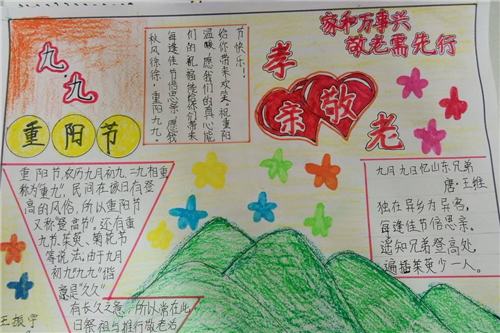 九.九
重阳节
秋风徐徐.重阳九九.
每逢佳节倍思亲.愿我
们的祝福能给你们带来
温暖.愿我们的真心能
给你带来欢笑.祝重阳
节快乐!
家和万事兴
敬老需先行
孝亲敬老
重阳节,农历九月初九,二九相重
称为"重九",民间在该日有登
高的风俗,所以重阳节
又称"登高节"。还有重
九节、茱萸、菊花节
等说法.由于九月
初九"九九"谐
意是"久久"
有长久之意,所以常在此
日祭祖与推行敬老活
九月九日忆山东兄弟
唐·王维
独在异乡为异客,
每逢佳节倍思亲.
遥知兄弟登高处,
遍插茱萸少一人。